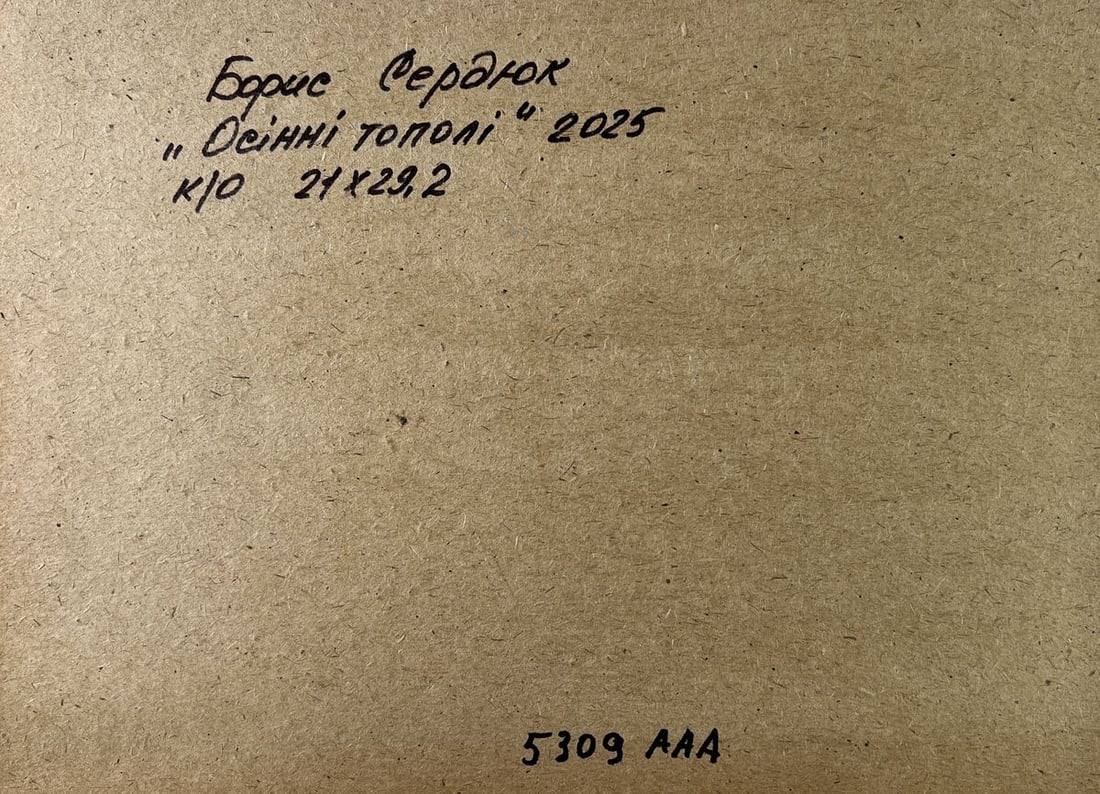 Борис Сердюк
„Осінні тополі“ 2025
к/о 21х29,2
5309 ААА